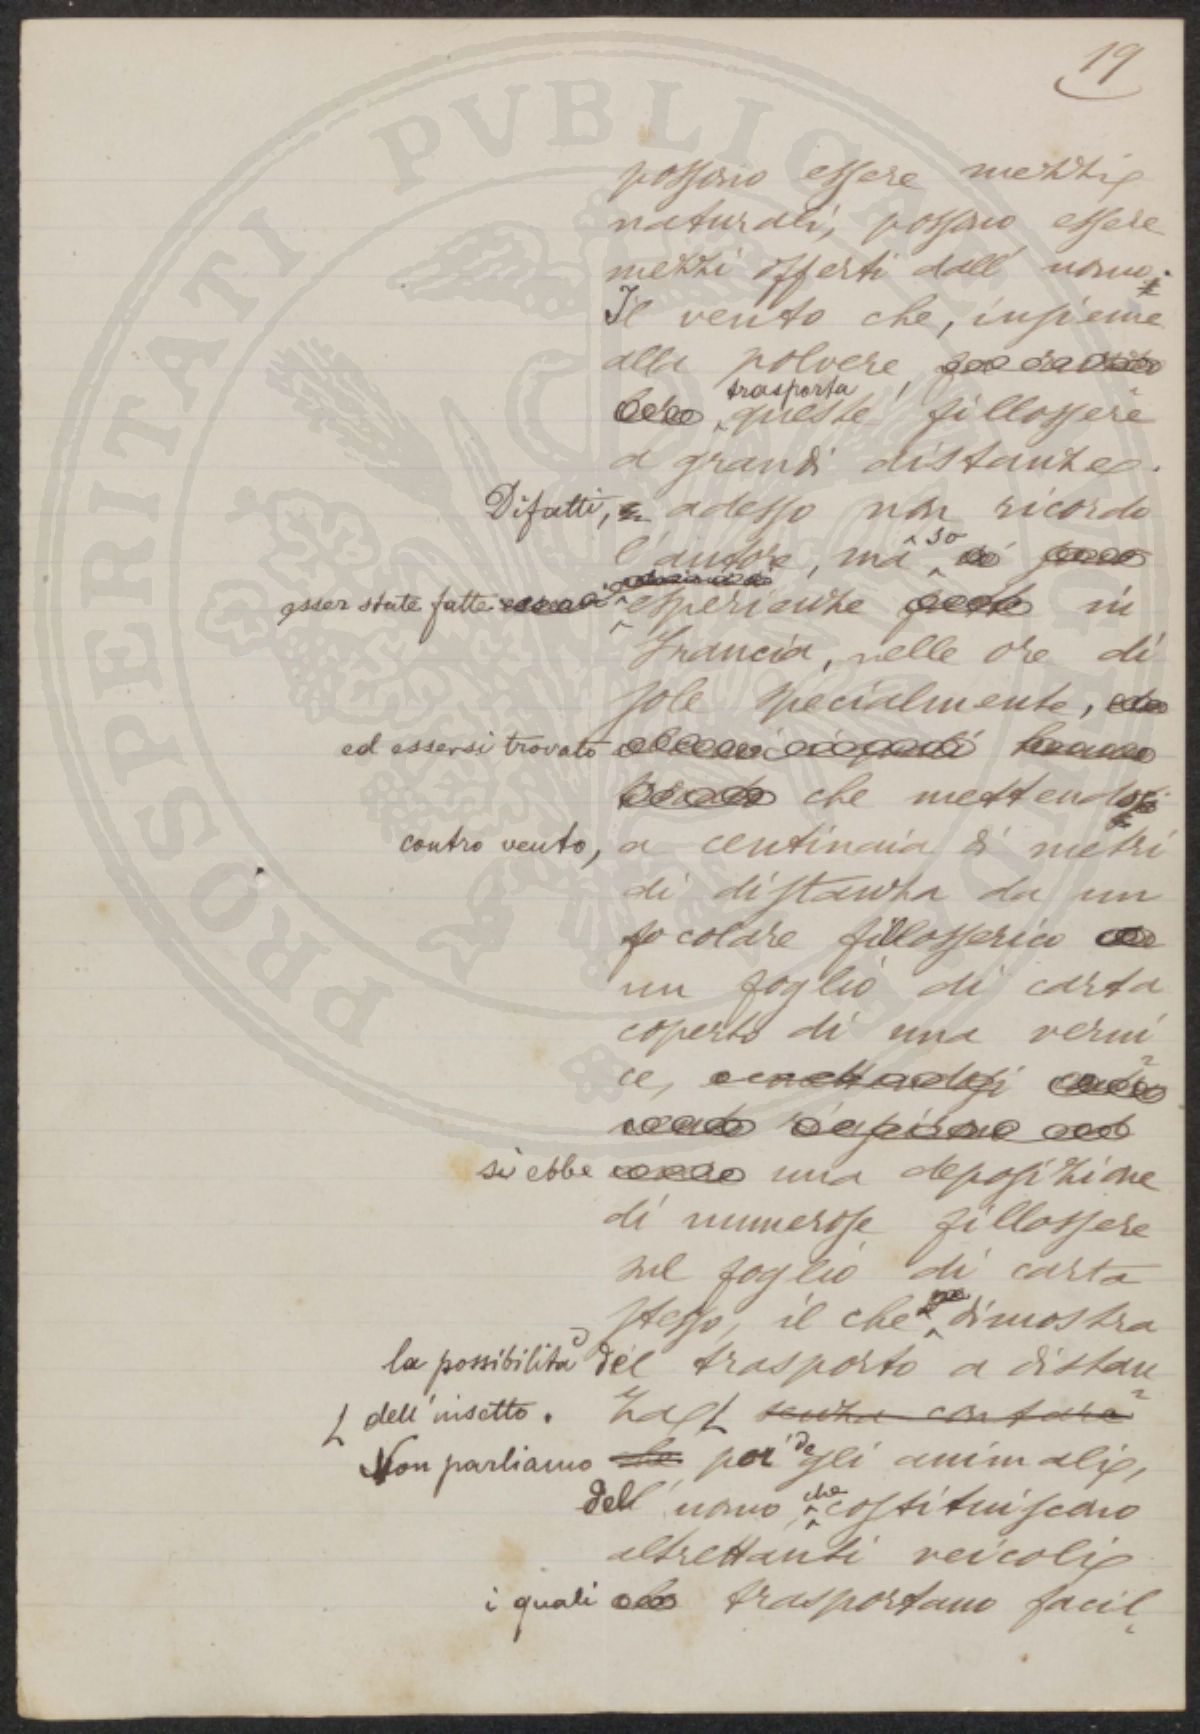 19
possono essere mezzi
naturali, possono essere
mezzi offerti dall' uomo.
Il vento che, insieme
alla polvere,
trasporta
queste fillossere
a grandi distanze.
Difatti, adesso non ricordo
l'autore, ma so
esser state fatte esperienze in
Francia, nelle ore di
sole specialmente,
ed essersi trovato
che mettendosi
contro vento, a centinaia di metri
di distanza da un
focolare fillosserico
un foglio di carta
coperto di una verni
ce,
si ebbe una deposizione
di numerose fillossere
sul foglio di carta
stesso, il che dimostra
la possibilità del trasporto a distan
za senza contare
dell' insetto.
Non parliamo poi degli animali,
dell' uomo, che costituiscono
altrettanti veicoli
i quali trasportano facil
PROSPERITATI PVBLICAE